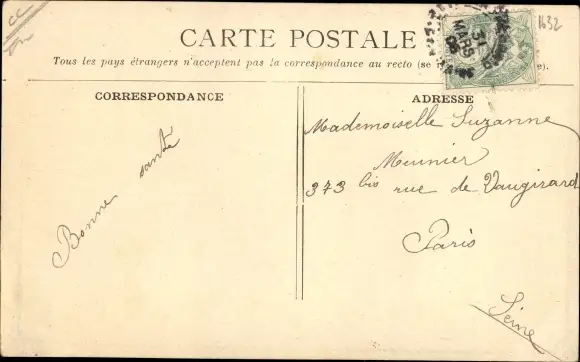 CC
1632
CARTE POSTALE
31
MARS
Tous les pays étrangers n'acceptent pas la correspondance au recto (se
CORRESPONDANCE
Bonne santé
ADRESSE
Mademoiselle Suzanne
Meunier
373 bis rue de Vaugirard
Paris
Seine